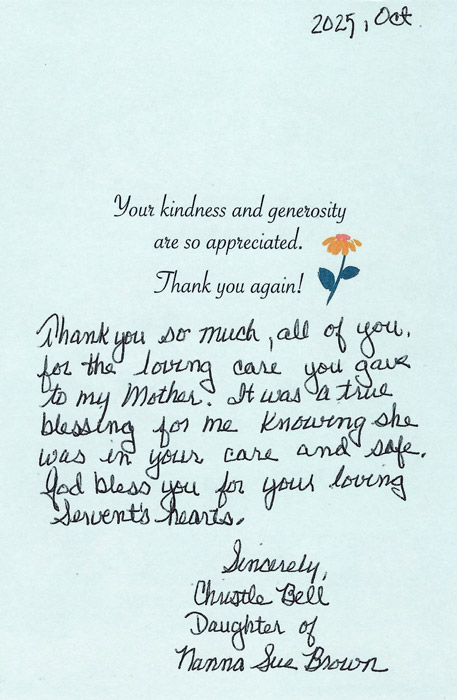 2025, Oct
Your kindness and generosity
are so appreciated.
Thank you again!
Thank you so much, all of you,
for the loving care you gave
to my Mother. It was a true
blessing for me knowing she
was in your care and safe.
God bless you for your loving
Servent's hearts.
Sincerely,
Christle Bell
Daughter of
Nanna Sue Brown